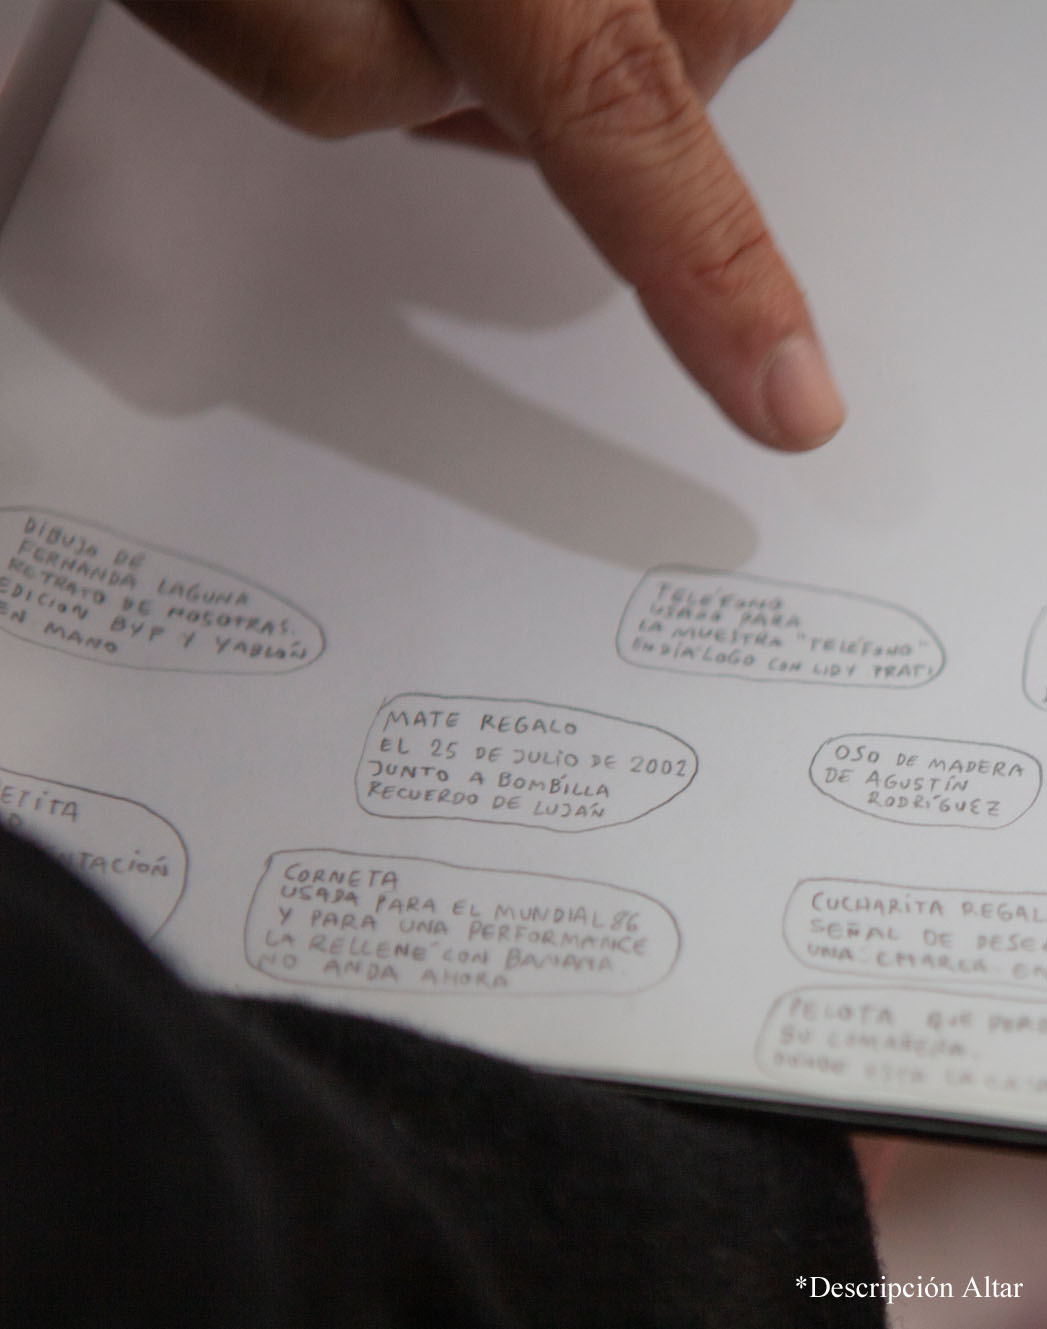 DIBUJO DE
FERNANDA LAGUNA
RETRATO DE NOSOTRAS.
EDICION BYP Y YABLÓN
EN MANO
TELÉFONO
USADO PARA
LA MUESTRA "TELÉFONO"
EN DIÁLOGO CON LIDY PRATI
MATE REGALO
EL 25 DE JULIO DE 2002
JUNTO A BOMBÍLLA
RECUERDO DE LUJÁN
OSO DE MADERA
DE AGUSTÍN
RODRÍGUEZ
ETITA
TACIÓN
CORNETA
USADA PARA EL MUNDIAL 86
Y PARA UNA PERFORMANCE
LA RELLENÉ CON BANANA.
NO ANDA AHORA
CUCHARITA REGAL
SEÑAL DE DESE
UNA CHARLA EN
PELOTA QUE
SU
DONDE ESTA LA
*Descripción Altar